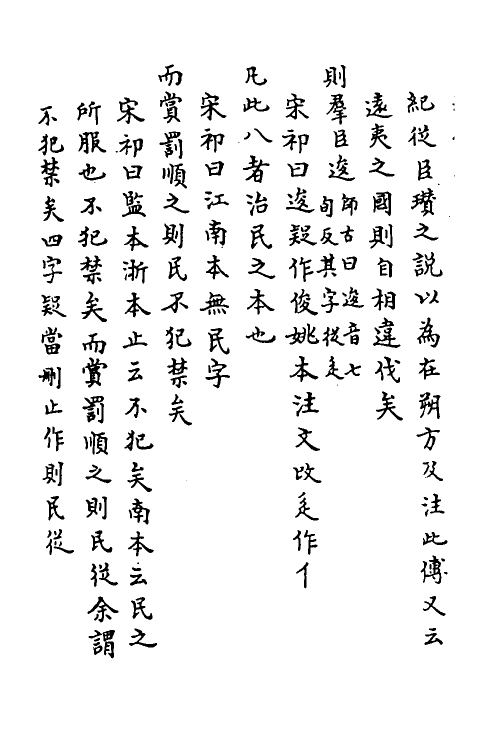 紀從臣瓚之說以為在朔方及注此傳又云
遠夷之國則自相違伐矣
則羣臣逡師古曰逡音七旬反其字從辵
宋祁曰逡疑作俊姚本注文改辵作亻
凡此八者治民之本也
宋祁曰江南本無民字
而賞罰順之則民不犯禁矣
宋祁曰監本浙本止云不犯矣南本云民之
所服也不犯禁矣而賞罰順之則民從余謂
不犯禁矣四字疑當刪止作則民從